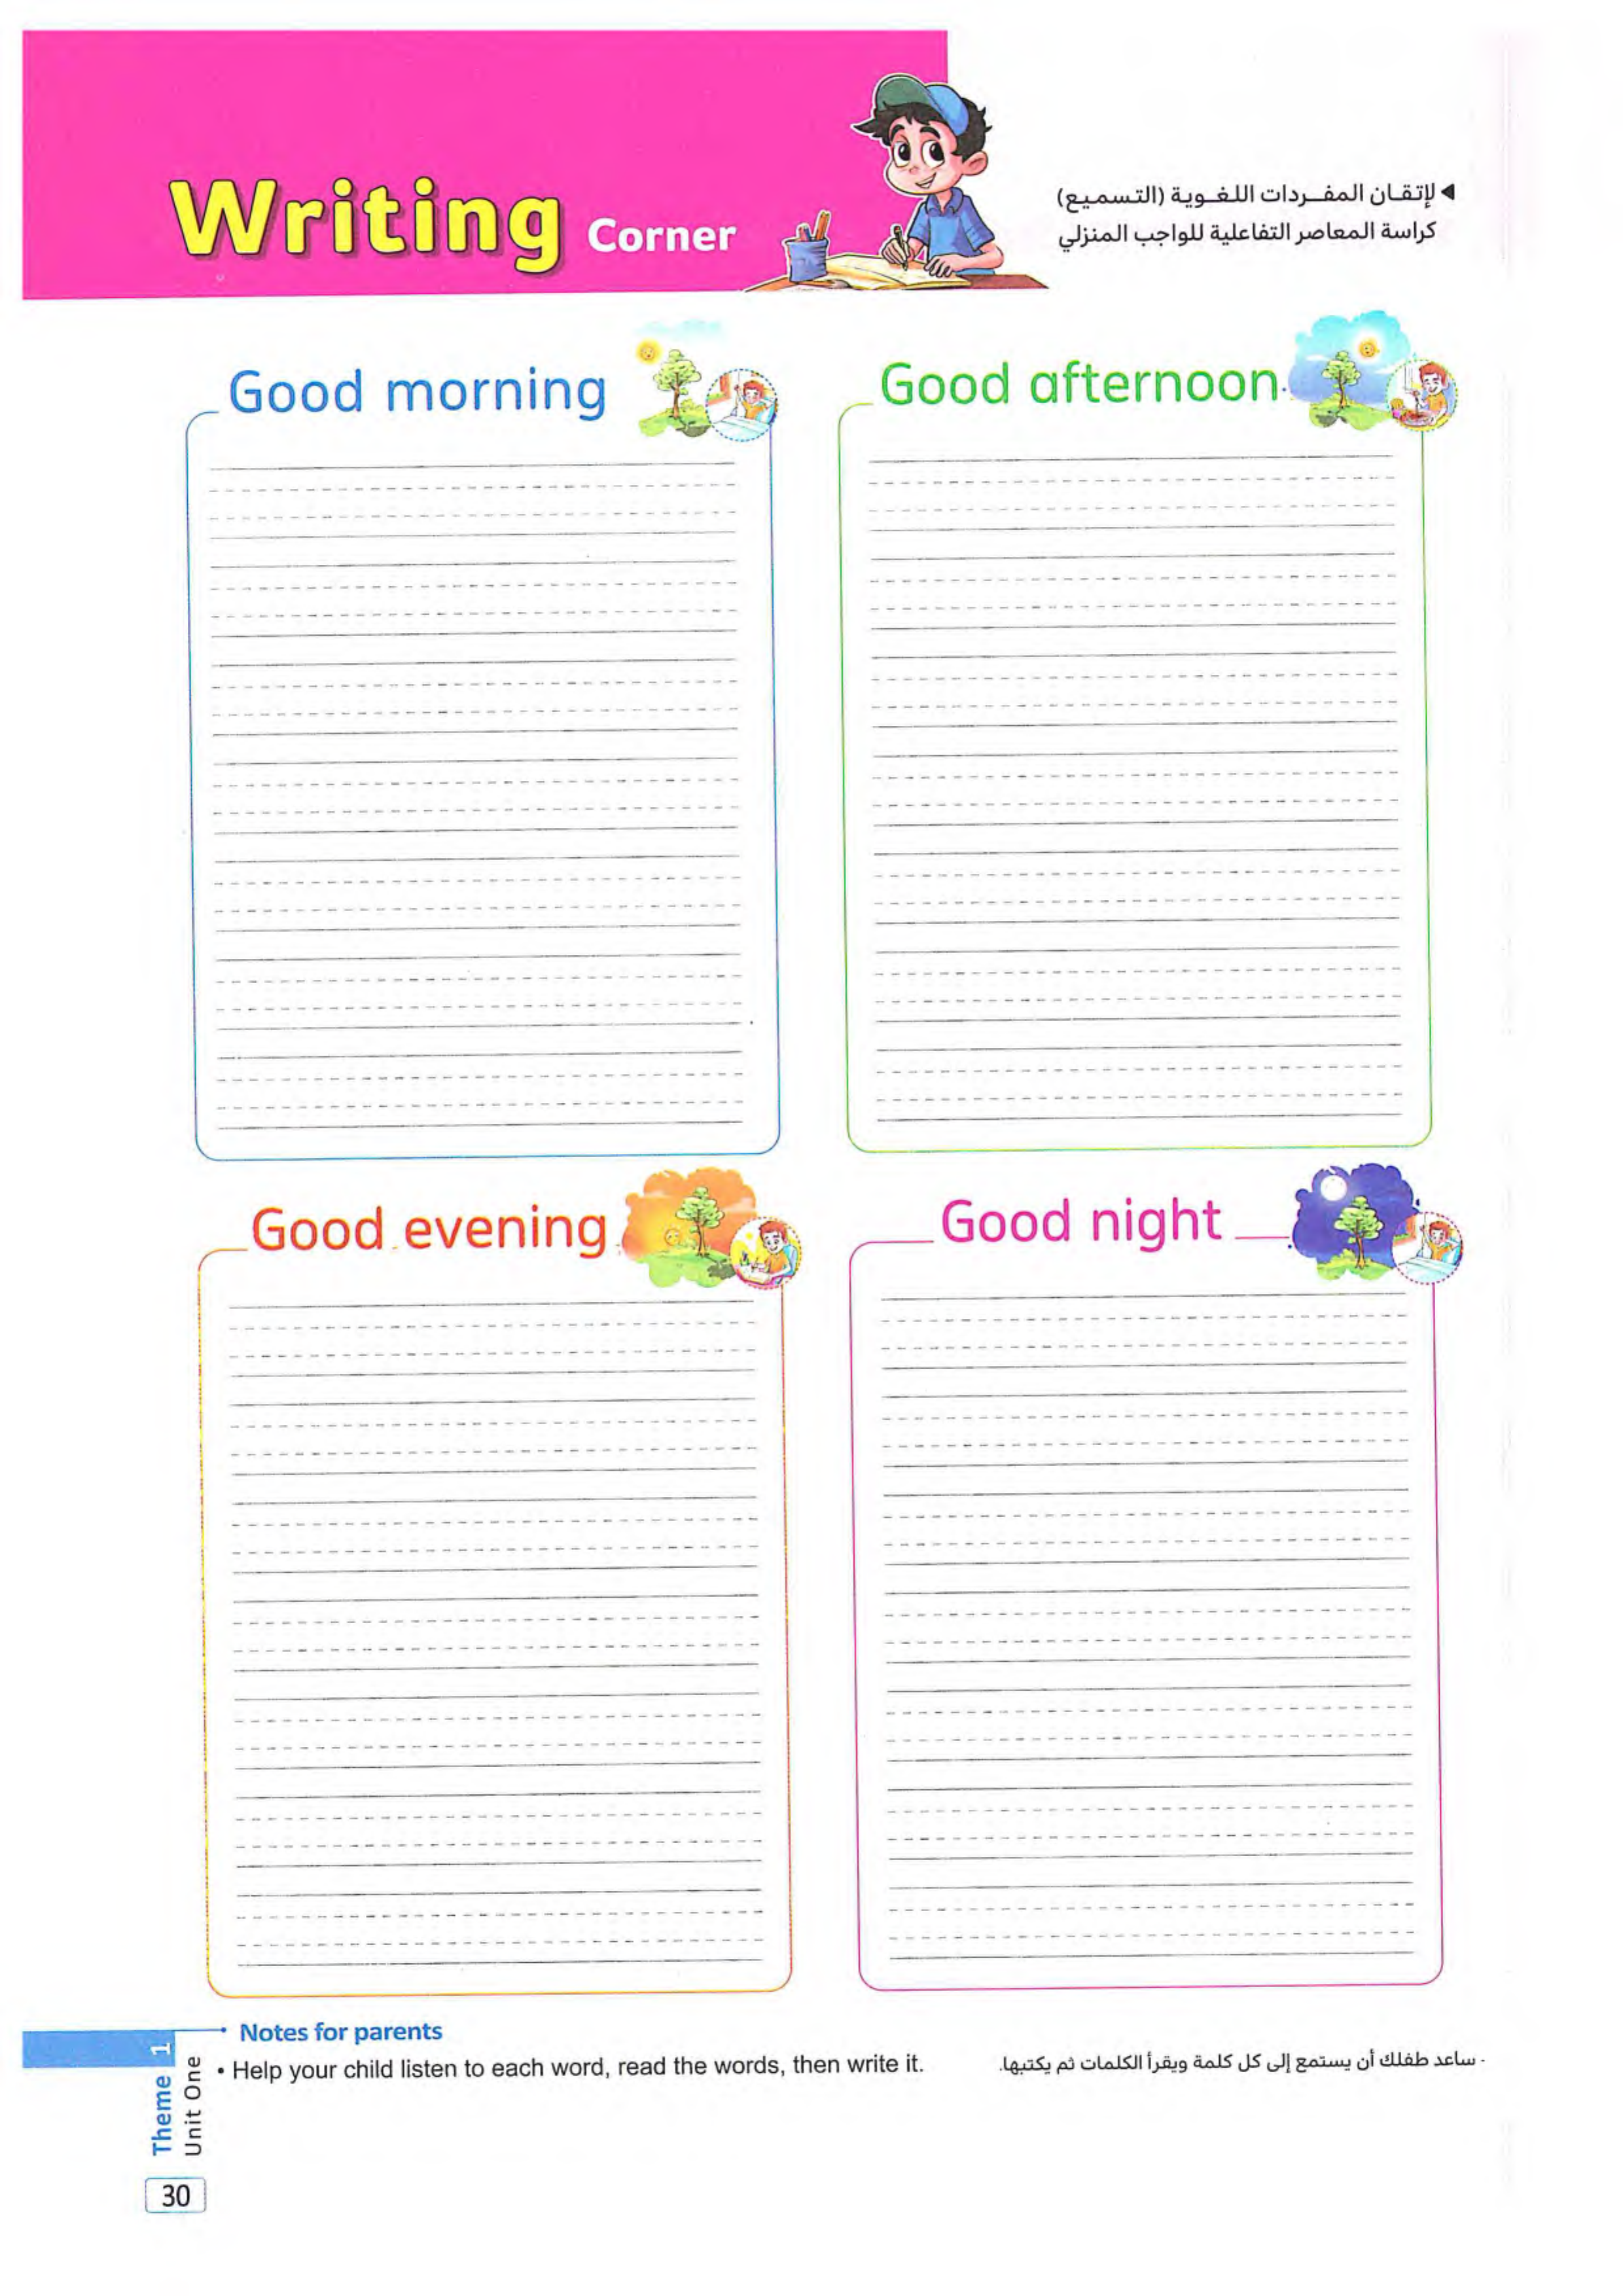 Writing Corner
◄ لإتقان المفردات اللغوية (التسميع)
كراسة المعاصر التفاعلية للواجب المنزلي
Good morning
Good afternoon
Good evening
Good night
Notes for parents
• Help your child listen to each word, read the words, then write it.
- ساعد طفلك أن يستمع إلى كل كلمة ويقرأ الكلمات ثم يكتبها.
Theme 1
Unit One
30